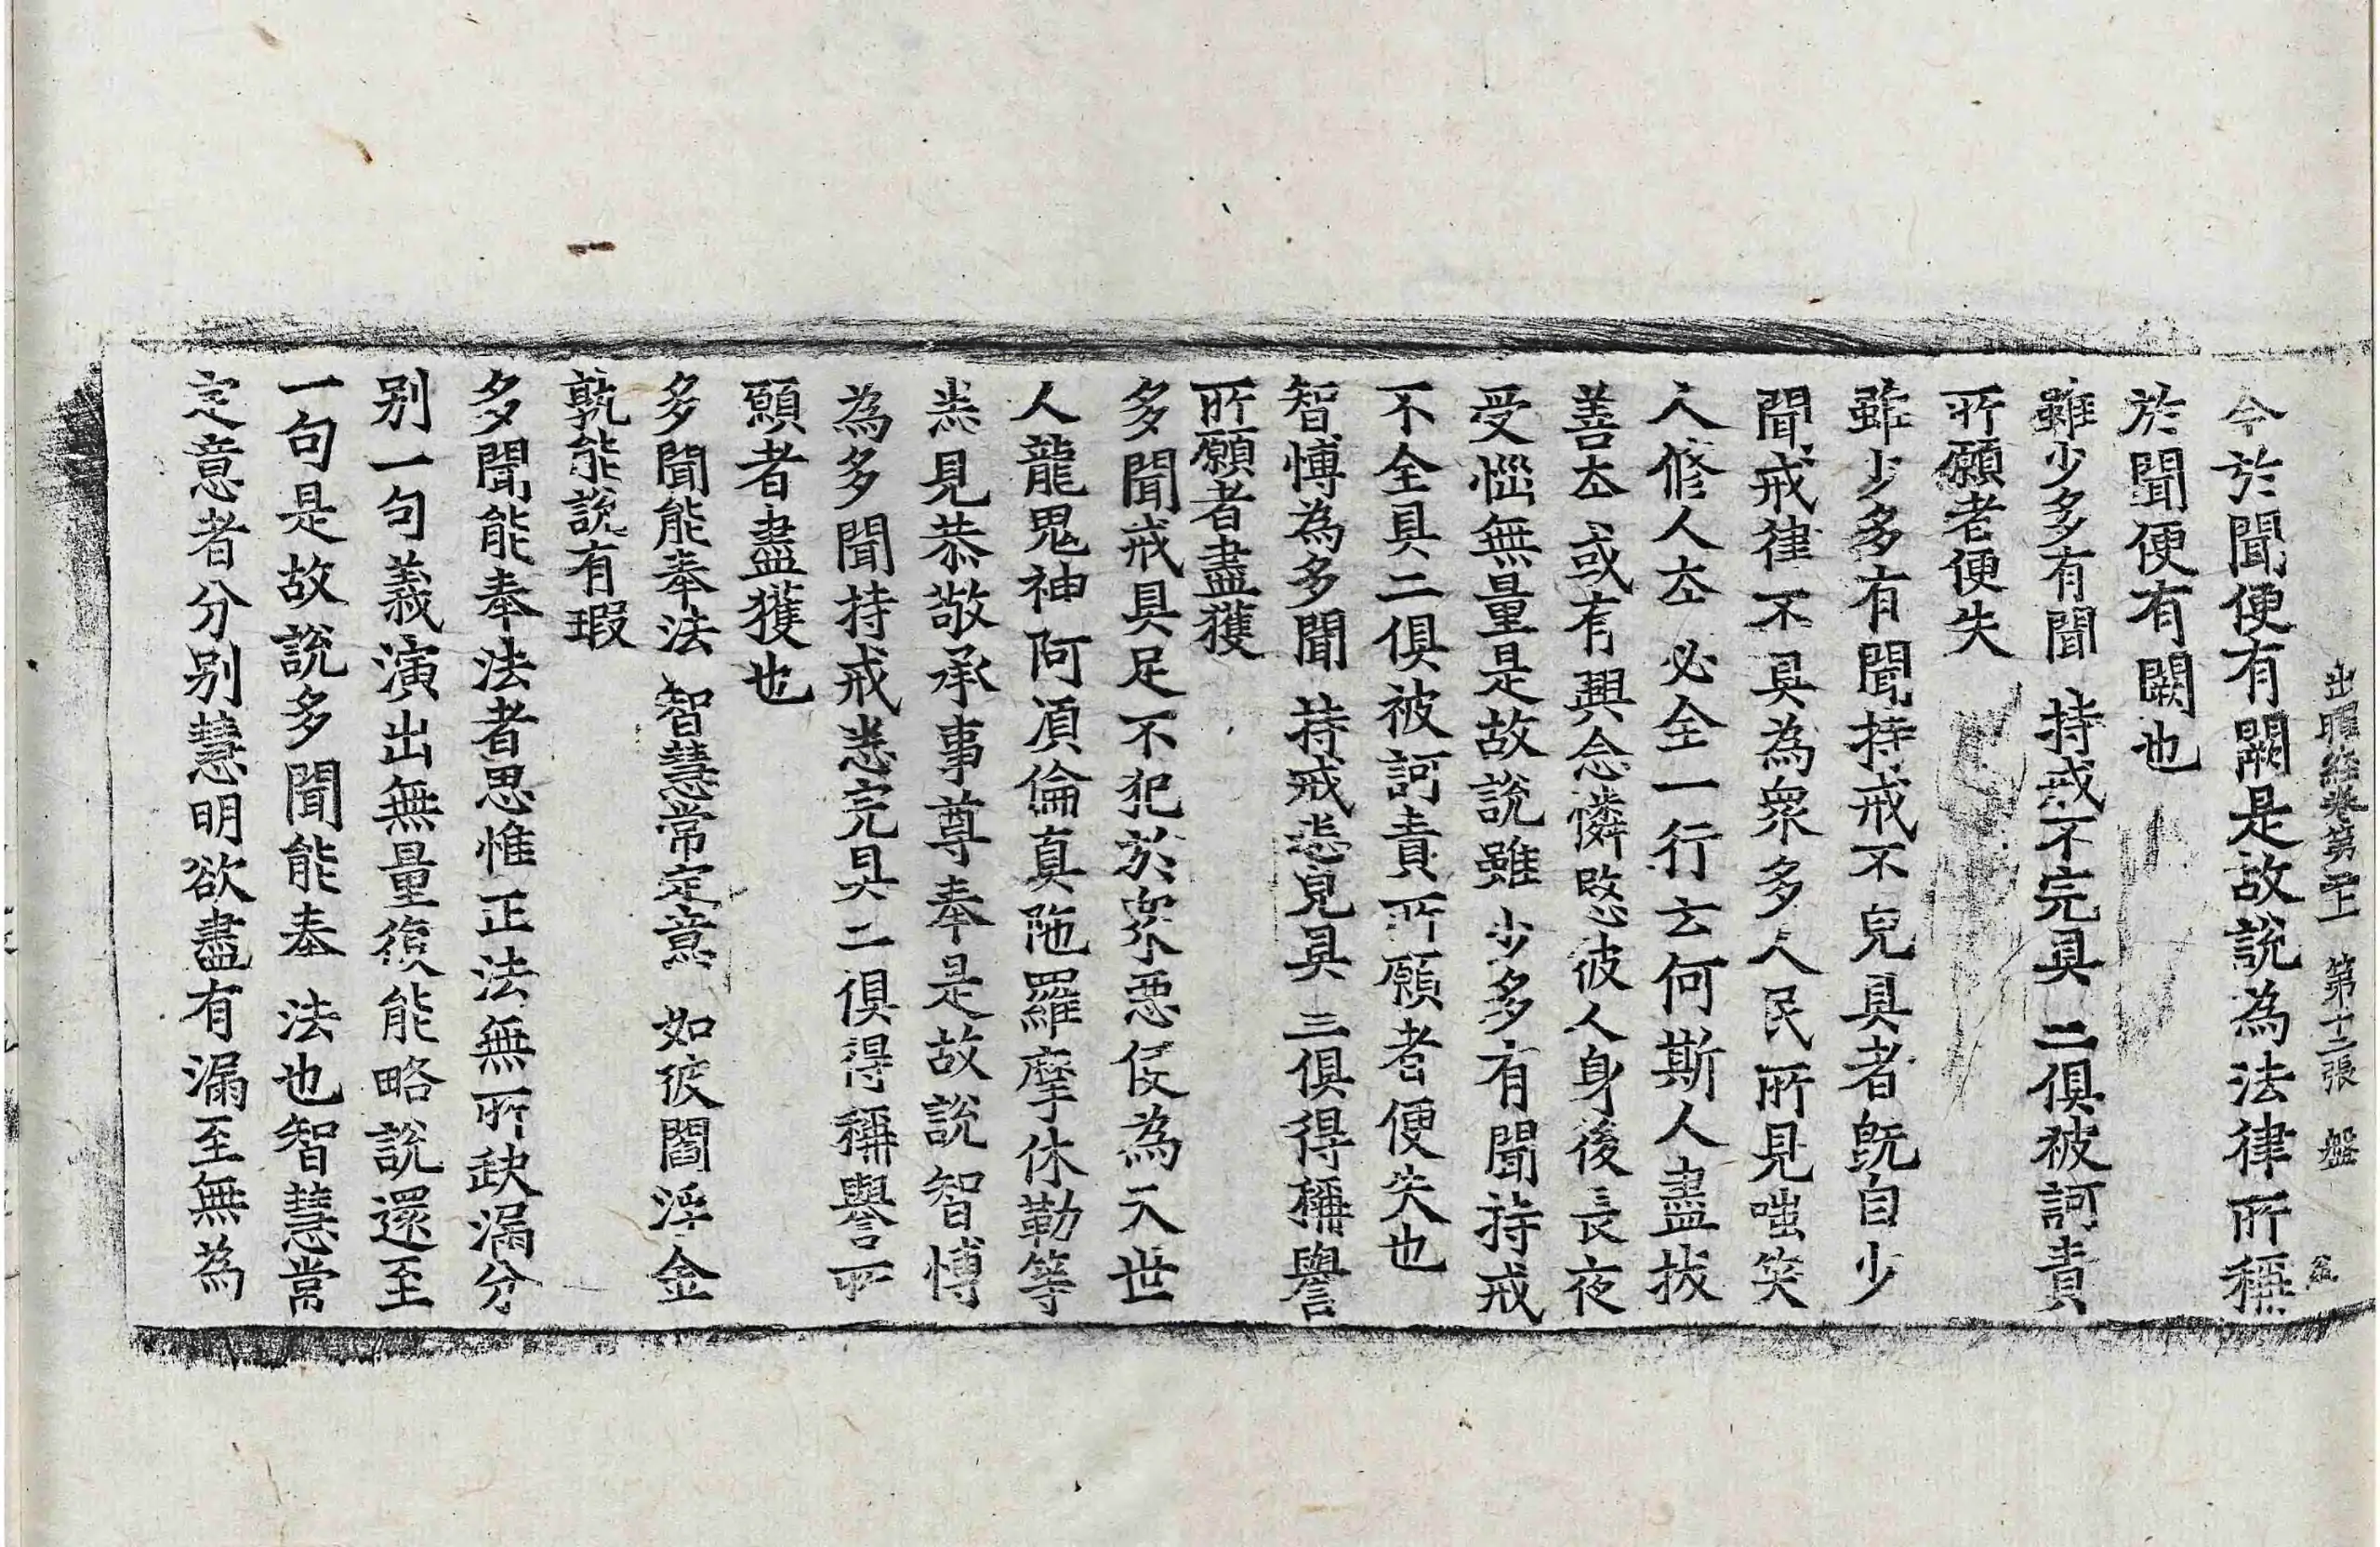 出曜經卷第二十 第十二張 盤
令於聞便有闕是故說為法律所稱
於聞便有闕也
雖少多有聞 持戒不完具 二俱被訶責
所願者便失
雖少多有聞持戒不完具者既自少
聞戒律不具為衆多人民所見嗤笑
人修人本必全一行云何斯人盡拔
善本或有興念憐愍彼人身後長夜
受惱無量是故說雖少多有聞持戒
不全具二俱被訶責所願者便失也
智博為多聞 持戒悉完具 二俱得稱譽
所願者盡獲
多聞戒具足不犯於衆惡使為天世
人龍鬼神阿須倫真陁羅摩休勒等
悉見恭敬承事尊奉是故說智博
為多聞持戒悉完具二俱得稱譽所
願者盡獲也
多聞能奉法 智慧常定意 如彼閻浮金
孰能說有瑕
多聞能奉法者思惟正法無所缺漏分
別一句義演出無量復能略說還至
一句是故說多聞能奉法也智慧常
定意者分別慧明欲盡有漏至無為